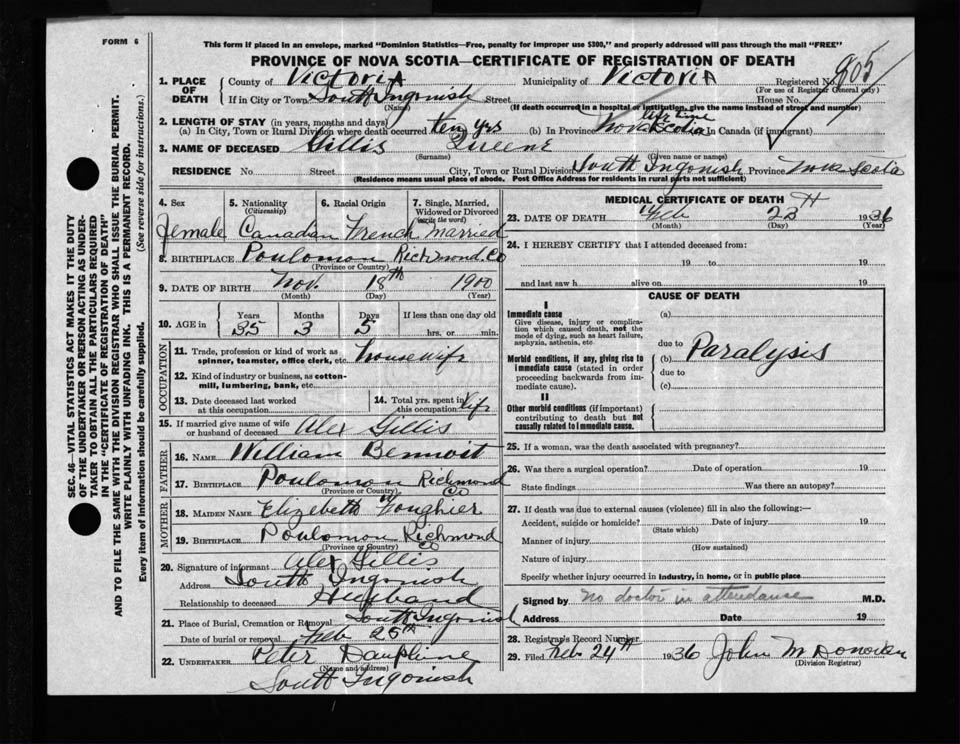 FORM 6
This form if placed in an envelope, marked "Dominion Statistics—Free, penalty for improper use $300," and properly addressed will pass through the mail "FREE"
PROVINCE OF NOVA SCOTIA—CERTIFICATE OF REGISTRATION OF DEATH
1. PLACE OF DEATH County of Victoria Municipality of Victoria Registered No. 805
(For use of Registrar General only)
If in City or Town South Ingonish Street House No.
(Name) (If death occurred in a hospital or institution, give the name instead of street and number)
2. LENGTH OF STAY (in years, months and days) life time
(a) In City, Town or Rural Division where death occurred ten yrs (b) In Province Nova Scotia In Canada (if immigrant)
3. NAME OF DECEASED Gillis
(Surname) (Given name or names)
RESIDENCE No. Street City, Town or Rural Division South Ingonish Province Nova Scotia
(Residence means usual place of abode. Post Office Address for residents in rural parts not sufficient)
4. Sex 5. Nationality (Citizenship) 6. Racial Origin 7. Single, Married, Widowed or Divorced (write the word)
Female Canadian French married
8. BIRTHPLACE Poulomon Richmond. Co
(Province or Country)
9. DATE OF BIRTH Nov. 18th 1900
(Month) (Day) (Year)
10. AGE in Years Months Days If less than one day old
35 3 5 hrs. or min.
OCCUPATION
11. Trade, profession or kind of work as spinner, teamster, office clerk, etc. housewife
12. Kind of industry or business, as cotton-mill, lumbering, bank, etc.
13. Date deceased last worked at this occupation
14. Total yrs. spent in this occupation life
15. If married give name of wife or husband of deceased Alex Gillis
FATHER
16. NAME William Bennoit
17. BIRTHPLACE Poulomon Richmond Co
(Province or Country)
MOTHER
18. MAIDEN NAME Elizebeth
19. BIRTHPLACE Poulomon Richmond Co
(Province or Country)
20. Signature of informant Alex Gillis
Address South Ingonish
Relationship to deceased Husband
21. Place of Burial, Cremation or Removal South Ingonish
Date of burial or removal Feb 25th
22. UNDERTAKER Peter Dauphine
(Name and address)
South Ingonish
MEDICAL CERTIFICATE OF DEATH
23. DATE OF DEATH Feb 23 1936
(Month) (Day) (Year)
24. I HEREBY CERTIFY that I attended deceased from:
19 to 19
and last saw h alive on 19
CAUSE OF DEATH
I
Immediate cause
Give disease, injury or complication which caused death, not the mode of dying, such as heart failure, asphyxia, asthenia, etc.
(a)
due to
Morbid conditions, if any, giving rise to immediate cause (stated in order proceeding backwards from immediate cause).
(b) Paralysis
due to
(c)
II
Other morbid conditions (if important) contributing to death but not causally related to immediate cause.
25. If a woman, was the death associated with pregnancy?
26. Was there a surgical operation? Date of operation 19
State findings Was there an autopsy?
27. If death was due to external causes (violence) fill in also the following:—
Accident, suicide or homicide? Date of injury 19
(State which)
Manner of injury
(How sustained)
Nature of injury
Specify whether injury occurred in industry, in home, or in public place
Signed by no doctor in attendance M.D.
Address Date 19
28. Registrar's Record Number
29. Filed Feb 24th 1936 John McDonovan
(Division Registrar)
SEC. 46—VITAL STATISTICS ACT MAKES IT THE DUTY
OF THE UNDERTAKER OR PERSON ACTING AS UNDER-
TAKER TO OBTAIN ALL THE PARTICULARS REQUIRED
IN THE "CERTIFICATE OF REGISTRATION OF DEATH"
AND TO FILE THE SAME WITH THE DIVISION REGISTRAR WHO SHALL ISSUE THE BURIAL PERMIT.
WRITE PLAINLY WITH UNFADING INK. THIS IS A PERMANENT RECORD.
Every item of information should be carefully supplied. (See reverse side for instructions.)